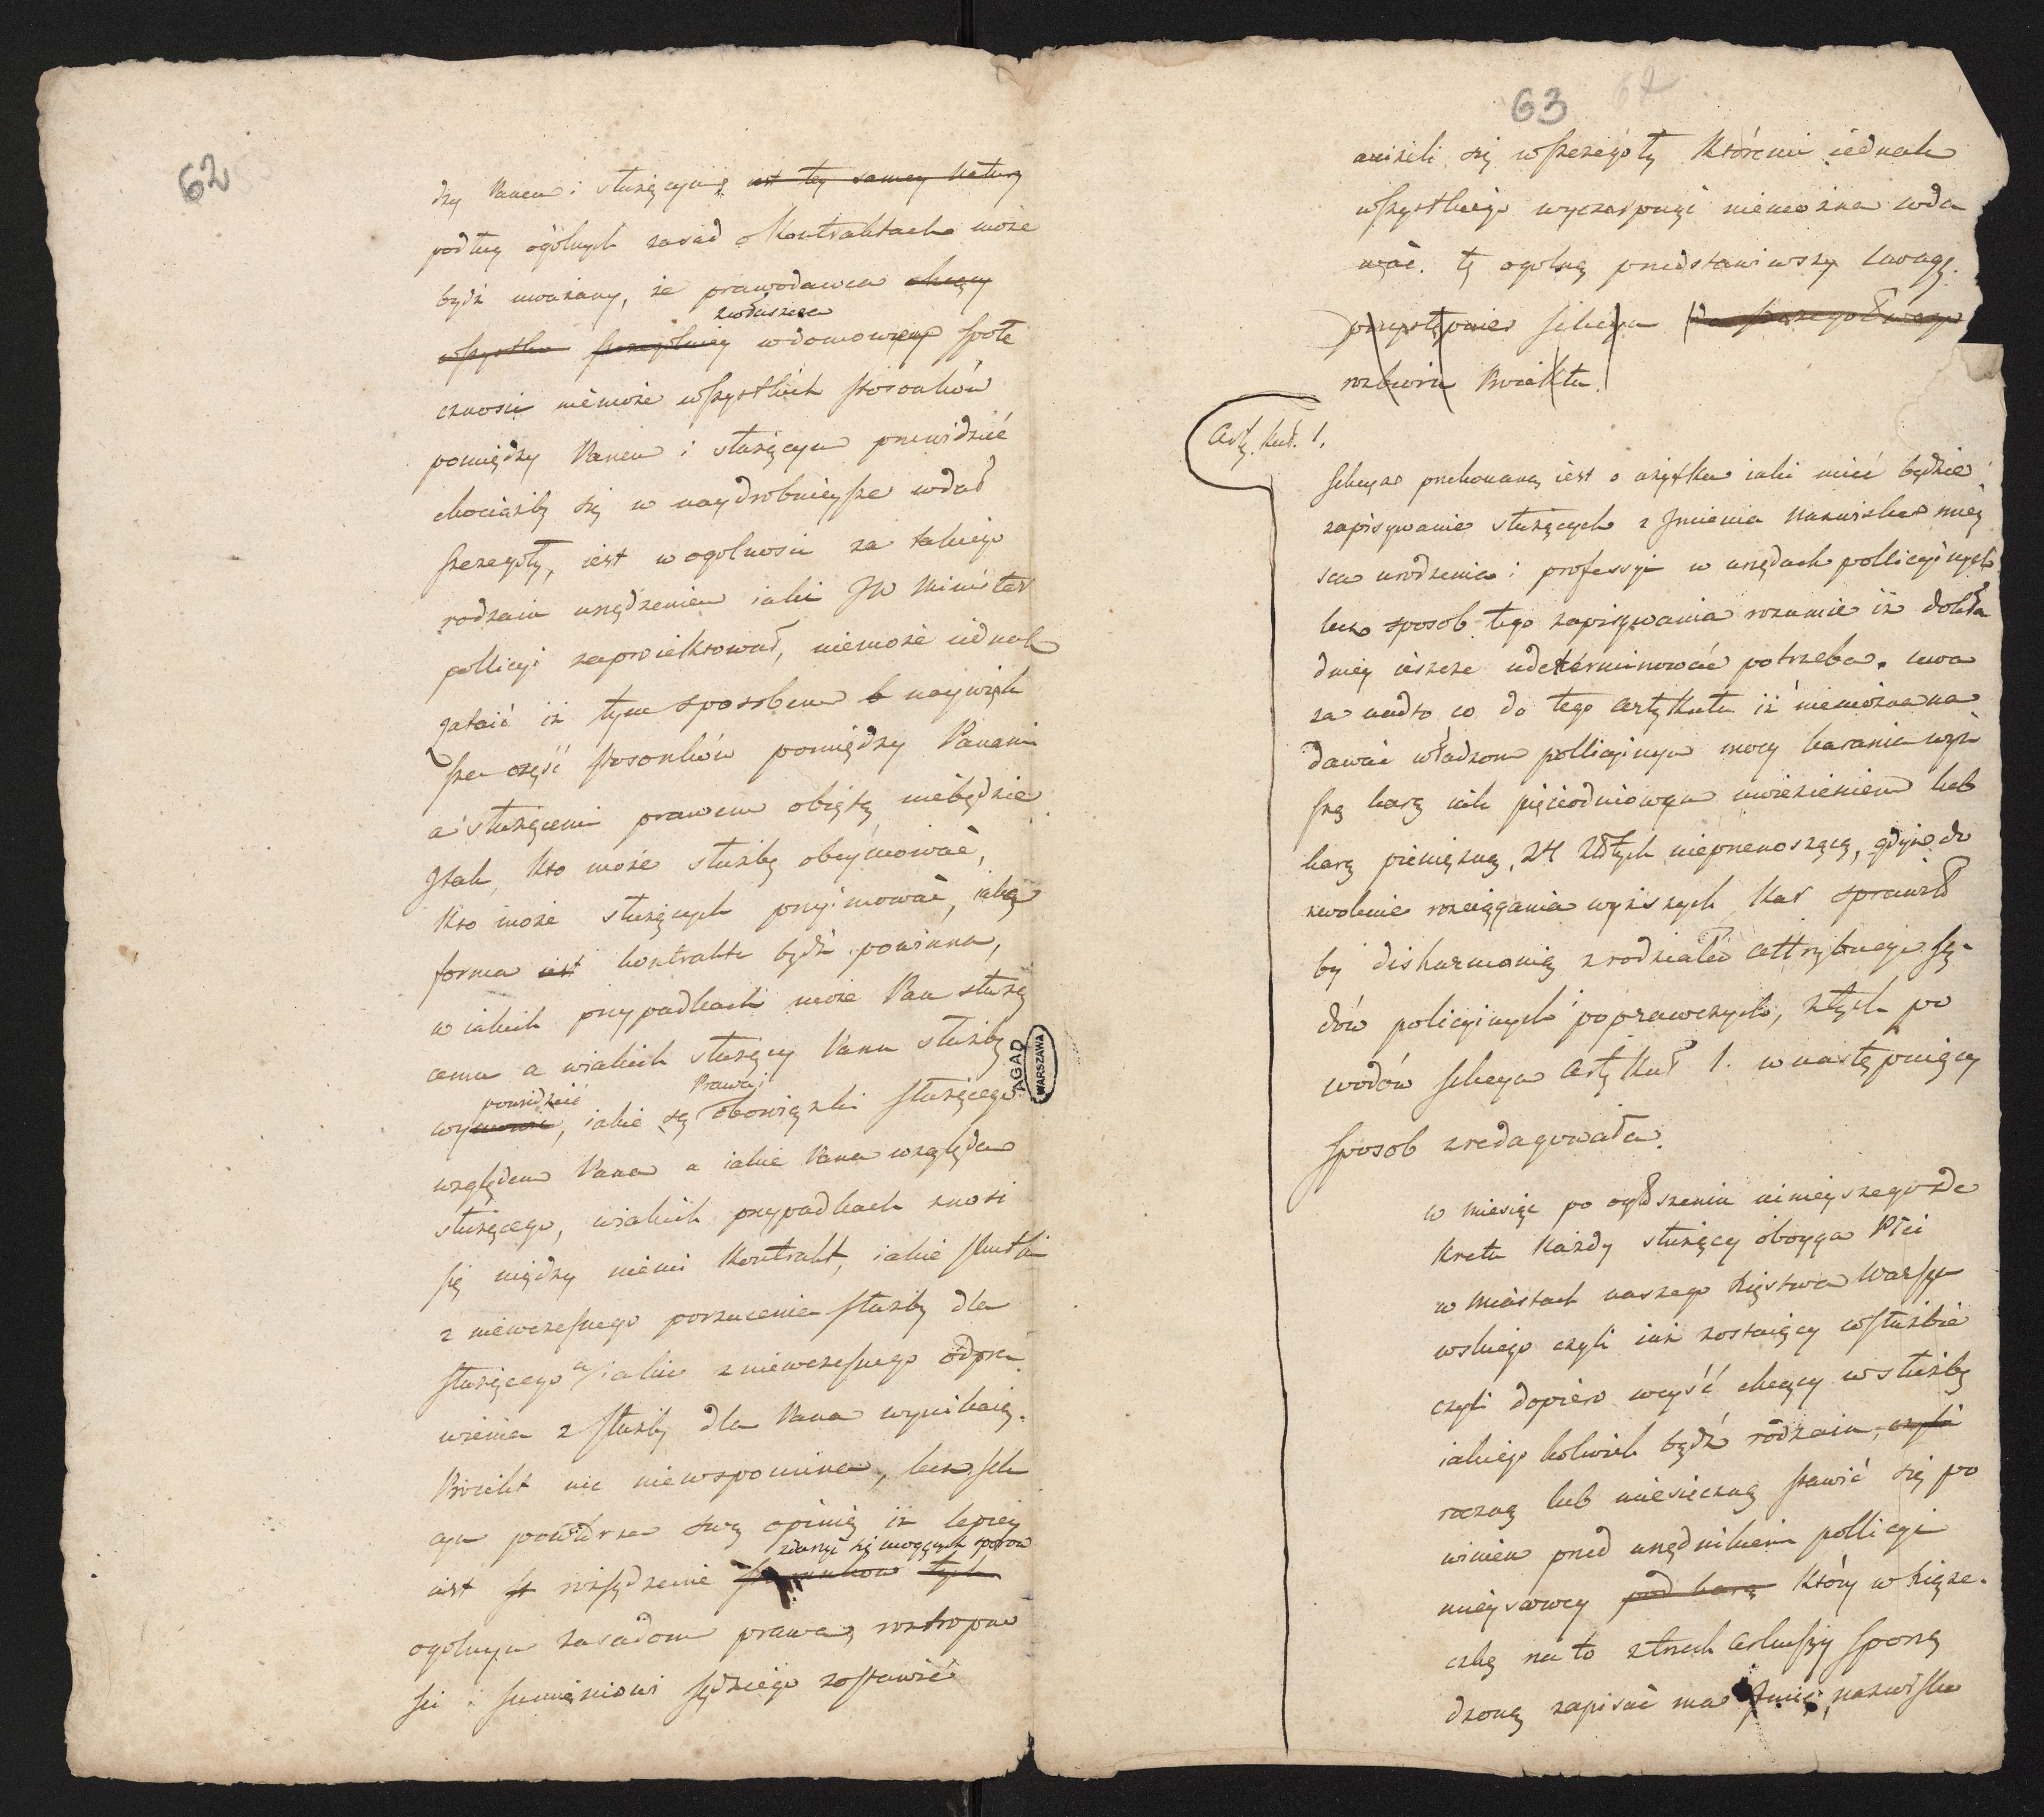 62
dzy Panem i służącym, iest tey samey natury
podług ogólnych zasad o Kontraktach może
bydź uważany, że prawodawca chcący
zwłaszcza
wszystko szczególniey w domowey społe
czności niemoże wszystkich stosunków
pomiędzy Panem i służącym przewidzieć
chociażby się w naydrobnieysze wdał
szczegóły, iest w ogolności za takiego
rodzaiu urządzeniem iakie JW Minister
pollicyi zaproiektował, niemoże iednak
zataić iż tym sposobem naywięk
sza część stosunków pomiędzy Panami
a służącemi prawem obiętą niebędzie
Jtak, kto może służbę obeymować,
kto może służących przyimować, iaka
forma iest kontraktu bydź powinna,
w iakich przypadkach może Pan służą
cemu a w iakich służący Panu służbę
powiedzieć Prawa i
wymowić, iakie są obowiązki służącego
względem Pana a iakie Pana względem
służącego, w iakich przypadkach znosi
się między niemi Kontrakt, iakie skutki
z niewczesnego porzucenia służby dla
służącego a iakie z niewczesnego odpra
wienia z służby dla Pana wynikaią.
Proiekt nic niewspomina, lecz sek
cya powtórza swą opinią iż lepiey
zdarzyć się mogących sporów
iest rozsądzenie stosunków tych
ogolnym zasadom prawa, roztropno
ści i sumnieniowi sędziego zostawić
AGAD
WARSZAWA
63 62
aniżeli się w szczegóły któremi iednak
wszystkiego wyczerpnąć niemożna wda
wać. tę ogolną przedstawiwszy uwagę.
przystępuie sekcya do szczegółowego
rozbioru Proiektu.
Artykuł. 1.
Sekcya przekonaną iest o użytku iaki mieć będzie
zapisywanie służących z Jmienia Nazwiska miey
sca urodzenia i professyi w urzędach pollicyinych
lecz sposob tego zapisywania rozumie iż dokła
dniey ieszcze udeterminować potrzeba. uwa
ża nadto co do tego artykułu iż niemożna na
dawać władzom pollicyinym mocy karania wyż
szą karą iak pięciodniowym więzieniem lub
karą pieniężną, 24 złłtych nieprzenoszącą, gdyż do
zwolenie rozciągania wyższych kar sprawił
by disharmonią z rodziałie attrybucyi Są
dów policyinych poprawczych, z tych po
wodów sekcya Artykuł 1. w następuiący
sposob zredagowała.
w miesiąc po ogłoszeniu ninieyszego de
kretu każdy służący oboyga Płci
w miastach naszego Xięstwa Warsza
wskiego czyli iuż zostaiący w służbie
czyli dopiero weyść chcący w służbę
iakiego kolwiek bądź rodzaiu, czyli
roczną lub miesięczną stawić się po
winien przed urzędnikiem pollicyi
mieyscowey pod karą Który w księże.
czkę na to z trzech arkuszy sporzą
dzoną zapisać ma Jmie, nazwisko